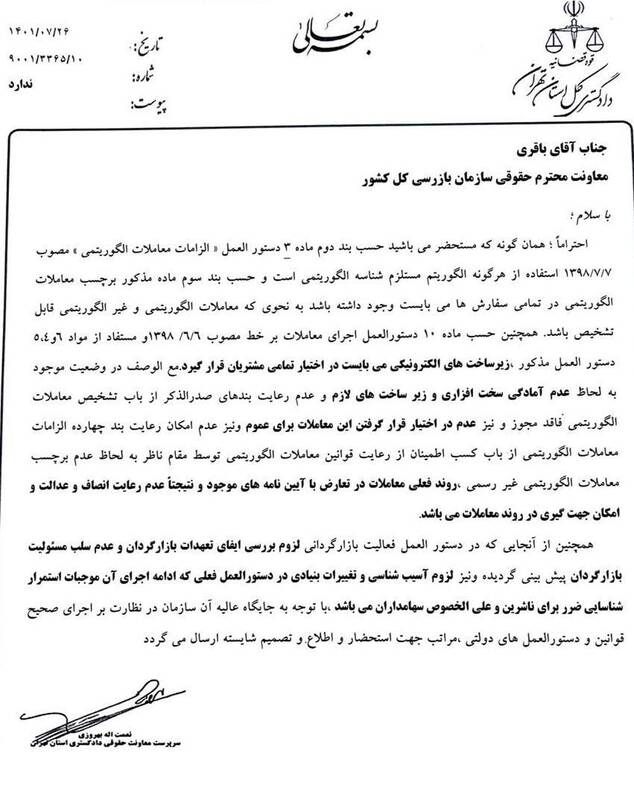 بسمه تعالی
قوه قضائیه
دادگستری کل استان تهران
تاریخ: ۱۴۰۱/۰۷/۲۶
شماره: ۹۰۰۱/۳۳۶۵/۱۰
پیوست: ندارد
جناب آقای باقری
معاونت محترم حقوقی سازمان بازرسی کل کشور
با سلام ؛
احتراماً ؛ همان گونه که مستحضر می باشید حسب بند دوم ماده ۳ دستور العمل « الزامات معاملات الگوریتمی » مصوب
۱۳۹۸/۷/۷ استفاده از هرگونه الگوریتم مستلزم شناسه الگوریتمی است و حسب بند سوم ماده مذکور برچسب معاملات
الگوریتمی در تمامی سفارش ها می بایست وجود داشته باشد به نحوی که معاملات الگوریتمی و غیر الگوریتمی قابل
تشخیص باشد. همچنین حسب ماده ۱۰ دستورالعمل اجرای معاملات بر خط مصوب ۱۳۹۸/۶/۶ و مستفاد از مواد ۵،۴و۶
دستور العمل مذکور ،زیرساخت های الکترونیکی می بایست در اختیار تمامی مشتریان قرار گیرد.مع الوصف در وضعیت موجود
به لحاظ عدم آمادگی سخت افزاری و زیر ساخت های لازم و عدم رعایت بندهای صدرالذکر از باب تشخیص معاملات
الگوریتمی فاقد مجوز و نیز عدم در اختیار قرار گرفتن این معاملات برای عموم ونیز عدم امکان رعایت بند چهارده الزامات
معاملات الگوریتمی از باب کسب اطمینان از رعایت قوانین معاملات الگوریتمی توسط مقام ناظر به لحاظ عدم برچسب
معاملات الگوریتمی غیر رسمی ،روند فعلی معاملات در تعارض با آیین نامه های موجود و نتیجتاً عدم رعایت انصاف و عدالت و
امکان جهت گیری در روند معاملات می باشد.
همچنین از آنجایی که در دستور العمل فعالیت بازارگردانی لزوم بررسی ایفای تعهدات بازارگردان و عدم سلب مسئولیت
بازارگردان پیش بینی گردیده ونیز لزوم آسیب شناسی و تغییرات بنیادی در دستورالعمل فعلی که ادامه اجرای آن موجبات استمرار
شناسایی ضرر برای ناشرین و علی الخصوص سهامداران می باشد ،با توجه به جایگاه عالیه آن سازمان در نظارت بر اجرای صحیح
قوانین و دستورالعمل های دولتی ،مراتب جهت استحضار و اطلاع و تصمیم شایسته ارسال می گردد
نعمت اله بهروزی
سرپرست معاونت حقوقی دادگستری استان تهران